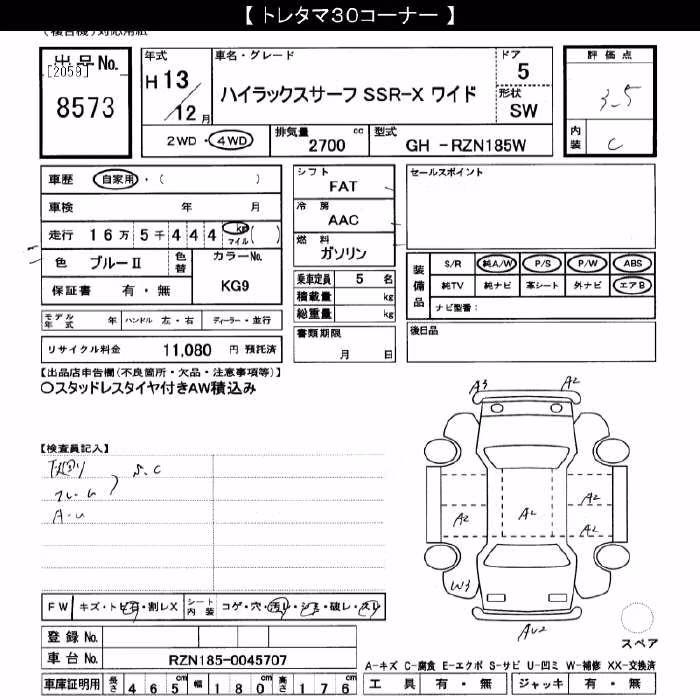 【 トレタマ30コーナー 】
(複合機)対応用紙
出品No.
[2059]
8573
年式
H 13 / 12 月
車名・グレード
ハイラックスサーフ SSR-X ワイド
ドア
5
形状
SW
評価点
3.5
内装
C
2WD ・ 4WD
排気量
2700 cc
型式
GH -RZN185W
車歴 自家用 ・ ( )
車検 年 月
走行 16万 5千 4 4 4 km マイル ( )
色 ブルーⅡ 色替
カラーNo.
KG9
保証書 有 ・ 無
シフト
FAT
冷房
AAC
燃料
ガソリン
乗車定員 5 名
積載量 kg
総重量 kg
書類期限
月 日
セールスポイント
装備品
S/R 純A/W P/S P/W ABS
純TV 純ナビ 革シート 外ナビ エアB
ナビ型番:
後日品
モデル年式 年 ハンドル 左・右 ディーラー・並行
リサイクル料金 11,080 円 預託済
【出品店申告欄(不良箇所・欠品・注意事項等)】
○スタッドレスタイヤ付きAW積込み
【検査員記入】
下回り
フレーム
S.C
A-U
A3
A2
A2
A2
A2
A2
W3
AU2
スペア
FW キズ・トビ石・割レX
シート内装 コゲ・穴・汚レ・シミ・破レ・スレ
登録No.
車台No. RZN185-0045707
車庫証明用 長さ 465 cm 幅 180 cm 高さ 176 cm
A-キズ C-腐食 E-エクボ S-サビ U-凹ミ W-補修 XX-交換済
工具 有 ・ 無 ジャッキ 有 ・ 無